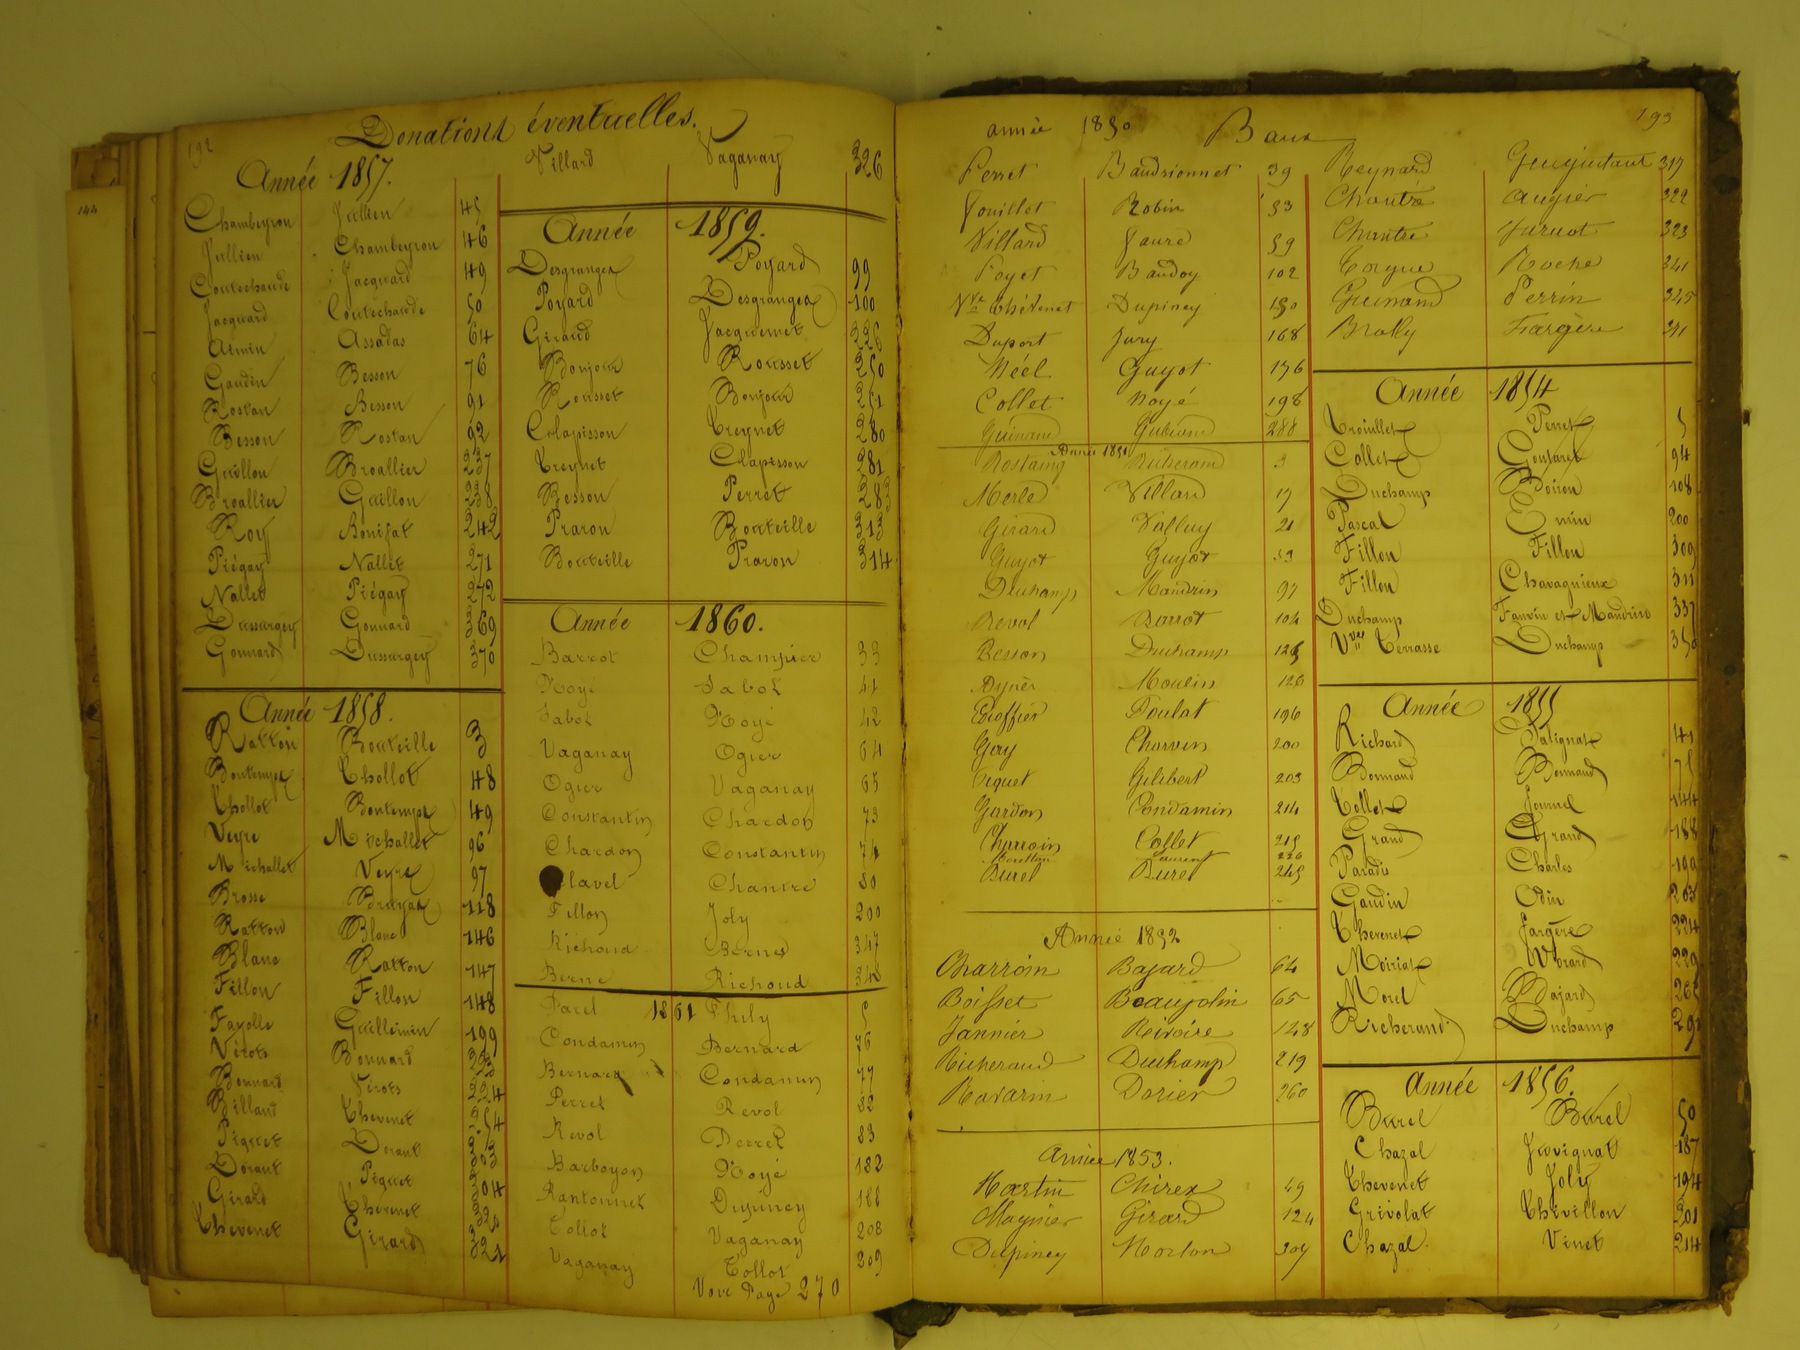 192
Donations éventuelles.
Année 1857.
Chambeyron Jullien 45
Jullien Chambeyron 46
Coutechaude Jacquard 49
Jacquard Coutechaude 50
Assadas 64
Gaudin Besson 76
Rostan Besson 91
Besson Rostan 92
Guillon Broallier 237
Broallier Guillon 238
Roy Bonifat 242
Piégay Nallet 271
Nallet Piégay 272
Dussurgey Gonnard 369
Gonnard Dussurgey 370
Année 1858.
Ratton Bouteille 3
Bontemps Thollot 48
Thollot Bontemps 49
Veyre Michallet 96
Michallet Veyre 97
Brosse Bruyas 118
Ratton Blanc 146
Blanc Ratton 147
Fillon Fillon 148
Fayolle Guillemin 199
Virots Bonnard 223
Bonnard Virots 224
Billand Thevenet 254
Piquet Dorant 303
Dorant Piquet 304
Girard Thevenet 320
Thevenet Girard 321
Villard Vaganay 326
Année 1859.
Desgranges Poyard 99
Poyard Desgranges 100
Girard Jacquemet 226
Bonjour Rousset 250
Rousset Bonjour 251
Clapisson Treynet 280
Treynet Clapisson 281
Besson Perret 283
Praron Bouteille 313
Bouteille Praron 314
Année 1860.
Barrot Champier 33
Noyé Sabot 41
Sabot Noyé 42
Vaganay Ogier 64
Ogier Vaganay 65
Constantin Chardon 73
Chardon Constantin 74
Clavel Chantre 80
Fillon Joly 200
Richoud Berne 347
Berne Richoud 348
1861
Paret Phily 5
Condamin Bernard 76
Bernard Condamin 77
Perret Revol 82
Revol Perret 83
Barboyon Noyé 182
Rantonnet Dupiney 188
Collot Vaganay 208
Vaganay Collot 209
Voir Page 270
193
année 1850 Baux
Perret Baudrionnet 39
Fouillet Robin 53
Villard Faure 59
Poyet Baudoy 102
Vve Thévenet Dupiney 150
Duport Jury 168
Néel Guyot 176
Collet Noyé 198
Guinand 288
Année 1851
Rostaing Richerand 3
Merle Villard 17
Girard Valluy 21
Guyot Guyot 53
Duchamp Mandrin 97
Revol Barrot 104
Besson Duchamp 125
Aynès Moulin 126
Geoffier Poulat 196
Gay Charvin 200
Piquet Gilibert 203
Gardon Condamin 214
Charroin Collet 215
Laurent 226
Burel Burel 245
Année 1852
Charroin Bajard 64
Boisset Beaujolin 65
Jannier Rivoire 148
Richeraud Duchamp 219
Ravarin Dorier 260
Année 1853.
Martin Chirex 49
Magnier Girard 124
Dupiney Morlon 309
Reynard 317
Chantre Augier 322
Chantre Jurnot 323
Corgne Roche 341
Guinand Perrin 345
Brally Fargère 241
Année 1854
Trouillet Perret 5
Collet 94
Duchamp Poison 108
Pascal 200
Fillon Fillon 309
Fillon Chavagnieux 311
Duchamp Fauvin et Mandrin 337
Vve Terrasse Duchamp 350
Année 1855
Richard Patignat 41
Bonnand Bonnand 75
Collet Journel 144
Grand Grand 188
Paradis Charles 199
Gaudin Odin 203
Thevenet Fargère 224
Moiriat Morard 229
Morel Bajard 262
Richerand Duchamp 291
Année 1856.
Burel Burel 50
Chazal Juvignat 187
Thevenet Joly 194
Grivolat Thivillon 301
Chazal Vinet 214
144